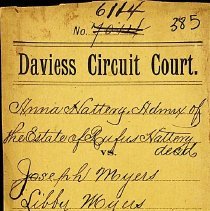 6114
No. 7044 385
Daviess Circuit Court.
Anna Hattery, Admx of
the Estate of Rufus Hattery
decd
vs.
Joseph Myers
Libby Myers